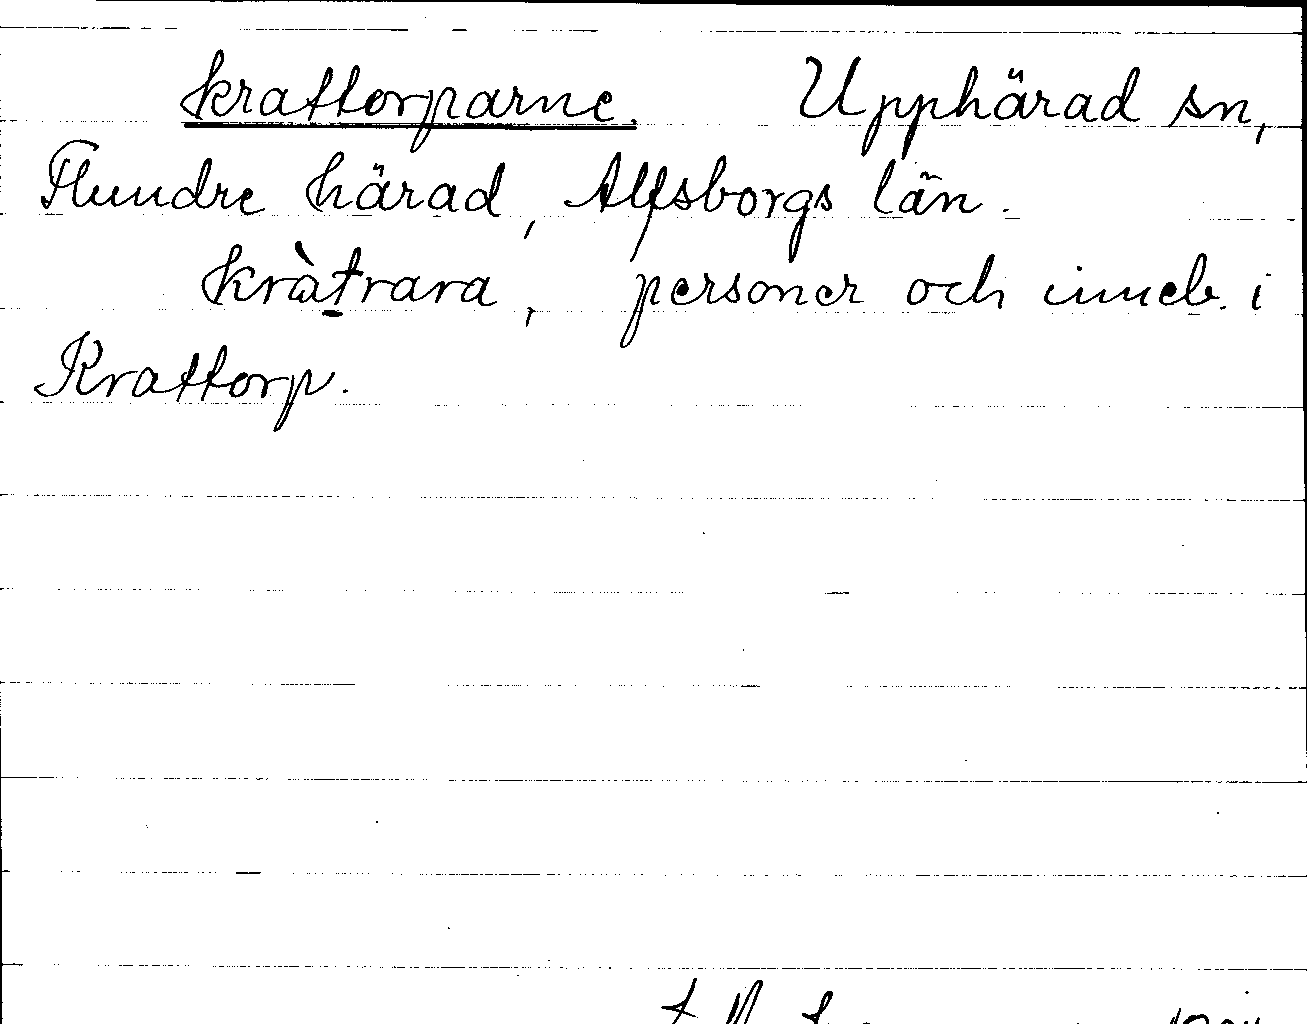 krattorparne. Upphärad sn,
Flundre härad, Alfsborgs län.
kràṯrara, personer och inneb. i
Krattorp.